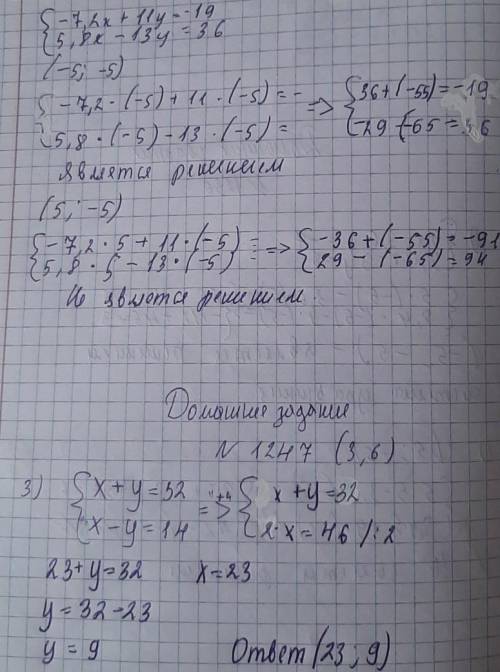 {-7,2x + 11y = -19
{5,8x - 13y = 36
(-5; -5)
{-7,2 · (-5) + 11 · (-5) = - => {36 + (-55) = -19
{5,8 · (-5) - 13 · (-5) = {-29 - (-65 = 36
является решением
(5; -5)
{-7,2 · 5 + 11 · (-5) = => {-36 + (-55) = -91
{5,8 · 5 - 13 · (-5) = {29 - (-65) = 94
Не является решением.
Домашние задание
N 1247 (3,6)
3) {x + y = 32 "+" => {x + y = 32
{x - y = 14 {2·x = 46 /:2
23 + y = 32 x = 23
y = 32 - 23
y = 9 Ответ (23; 9)